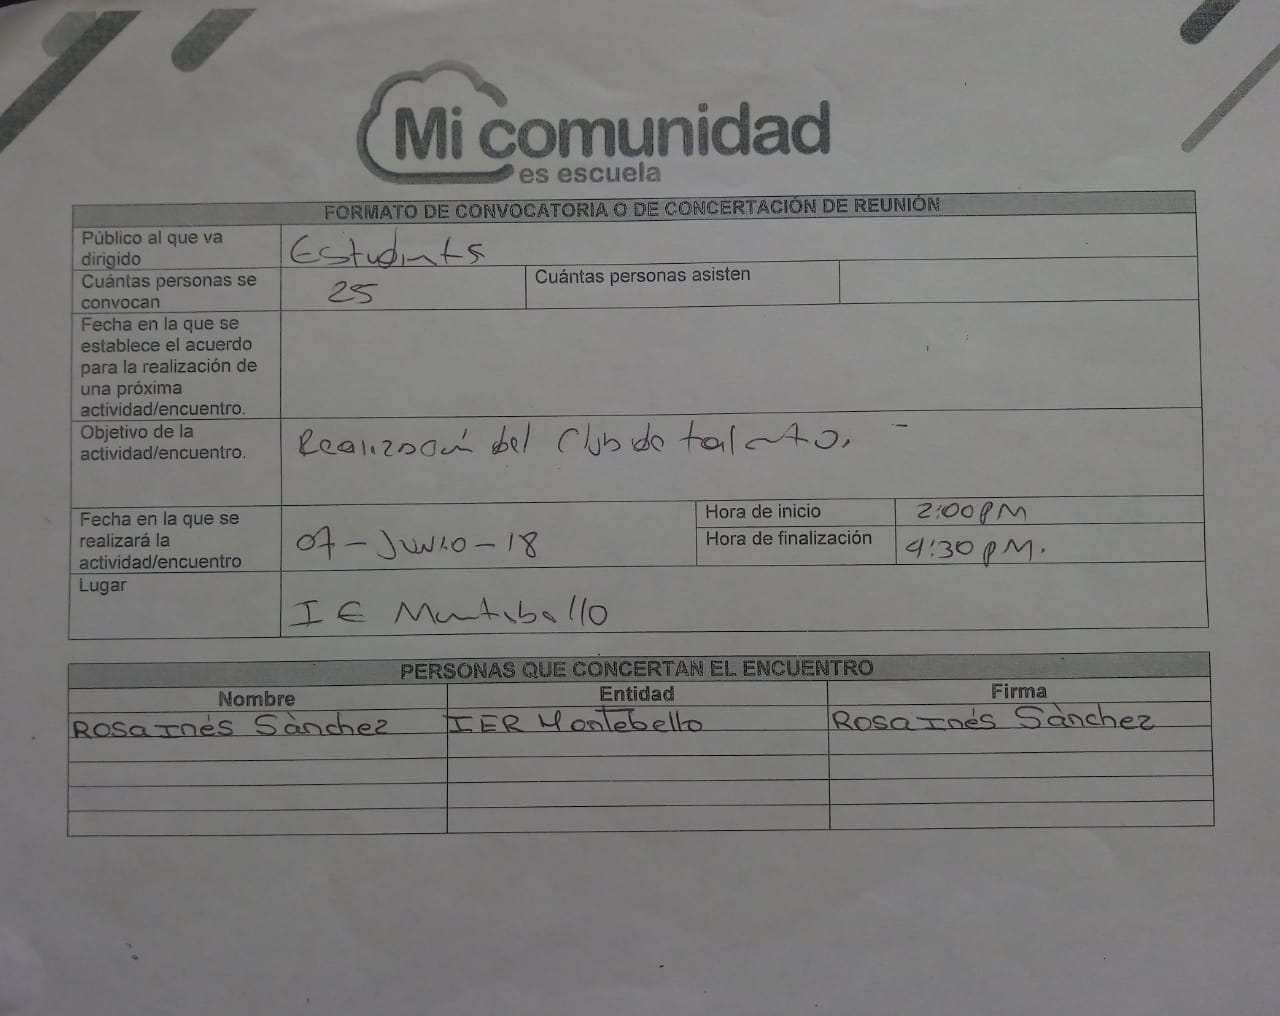 Mi comunidad
es escuela
FORMATO DE CONVOCATORIA O DE CONCERTACIÓN DE REUNIÓN
Público al que va
dirigido
Estudiantes
Cuántas personas se
convocan
25
Cuántas personas asisten
Fecha en la que se
establece el acuerdo
para la realización de
una próxima
actividad/encuentro.
Objetivo de la
actividad/encuentro.
Realización del Club de talento.
Fecha en la que se
realizará la
actividad/encuentro
07-Junio-18
Hora de inicio
2:00 PM
Hora de finalización
4:30 PM.
Lugar
I E Montebello
PERSONAS QUE CONCERTAN EL ENCUENTRO
Nombre Entidad Firma
Rosa Inés Sànchez IER Montebello Rosa Inés Sànchez